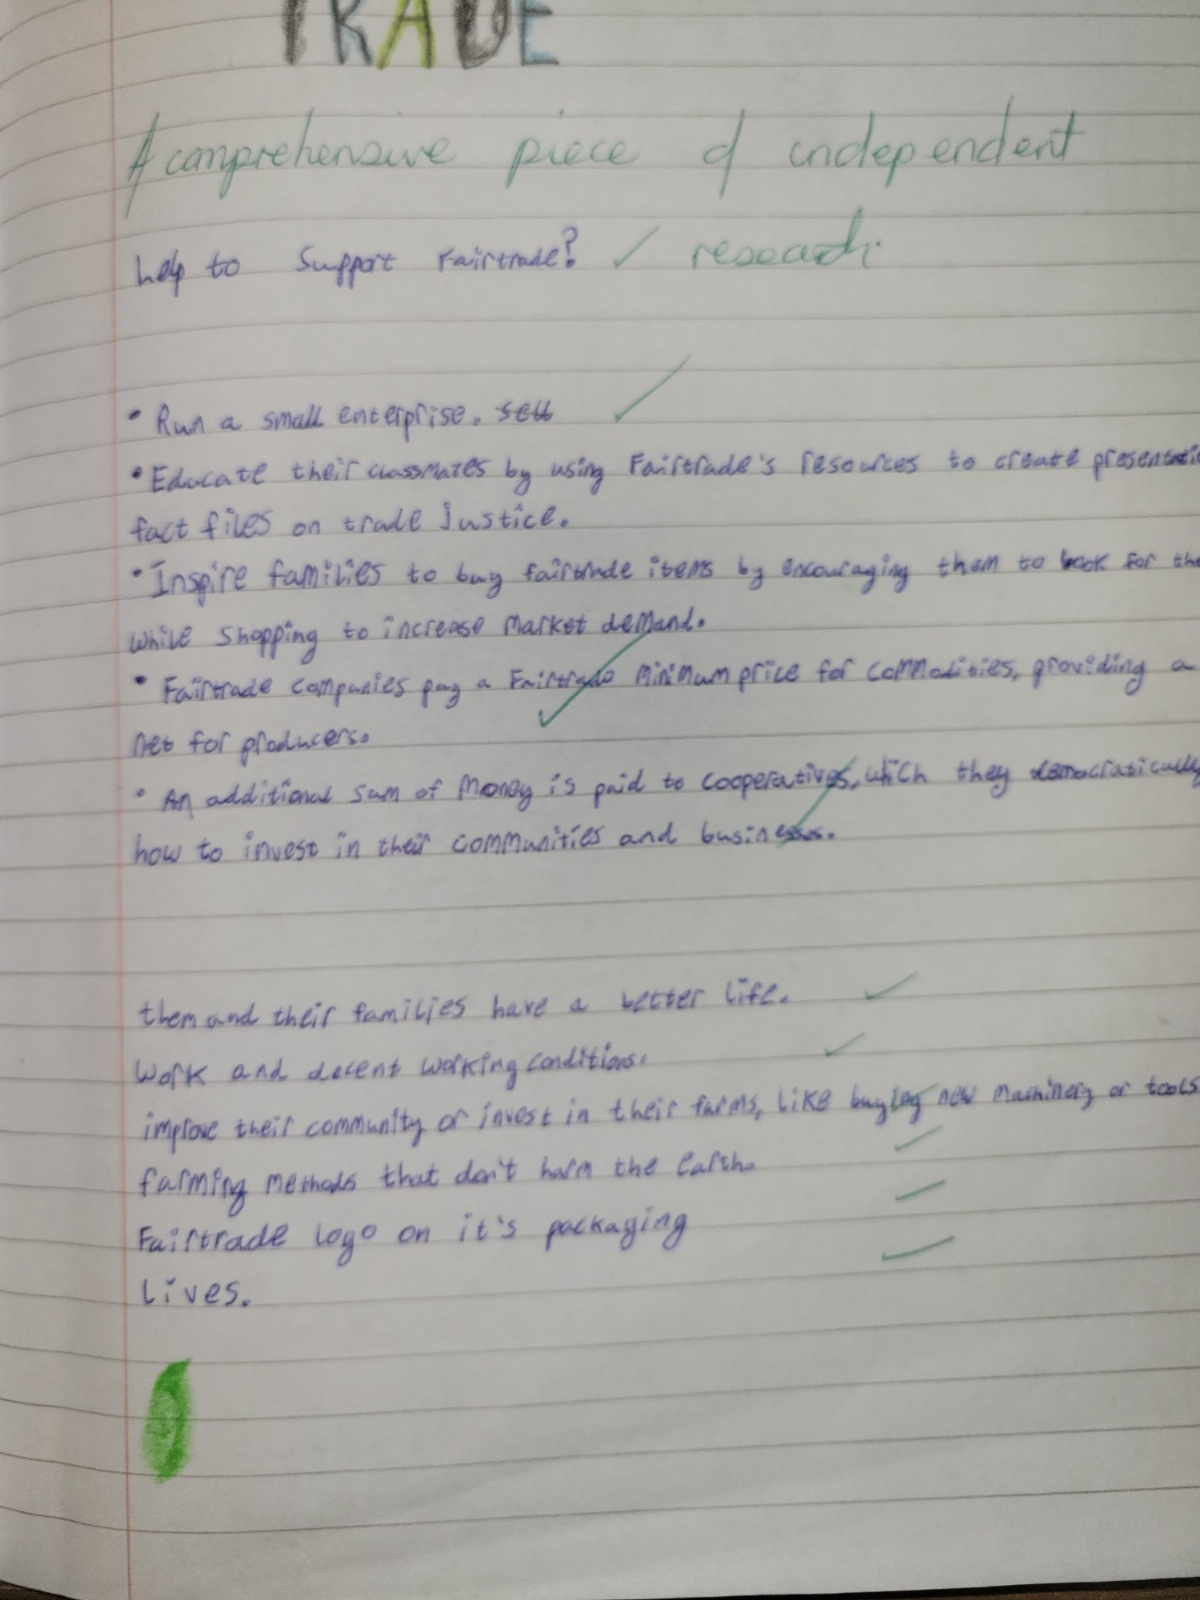 TRADE
A comprehensive piece of independent
help to support Fairtrade? ✓ research.
• Run a small enterprise. sell
• Educate their classmates by using Fairtrade's resources to create presentatio
fact files on trade justice.
• Inspire families to buy fairtrade items by encouraging them to look for the
while shopping to increase market demand.
• Fairtrade companies pay a Fairtrade minimum price for commodities, providing a
net for producers.
• An additional sum of money is paid to cooperatives, which they democratically
how to invest in their communities and business.
them and their families have a better life.
work and decent working conditions.
improve their community or invest in their farms, like buying new machinery or tools
farming methods that don't harm the Earth.
Fairtrade logo on it's packaging
lives.